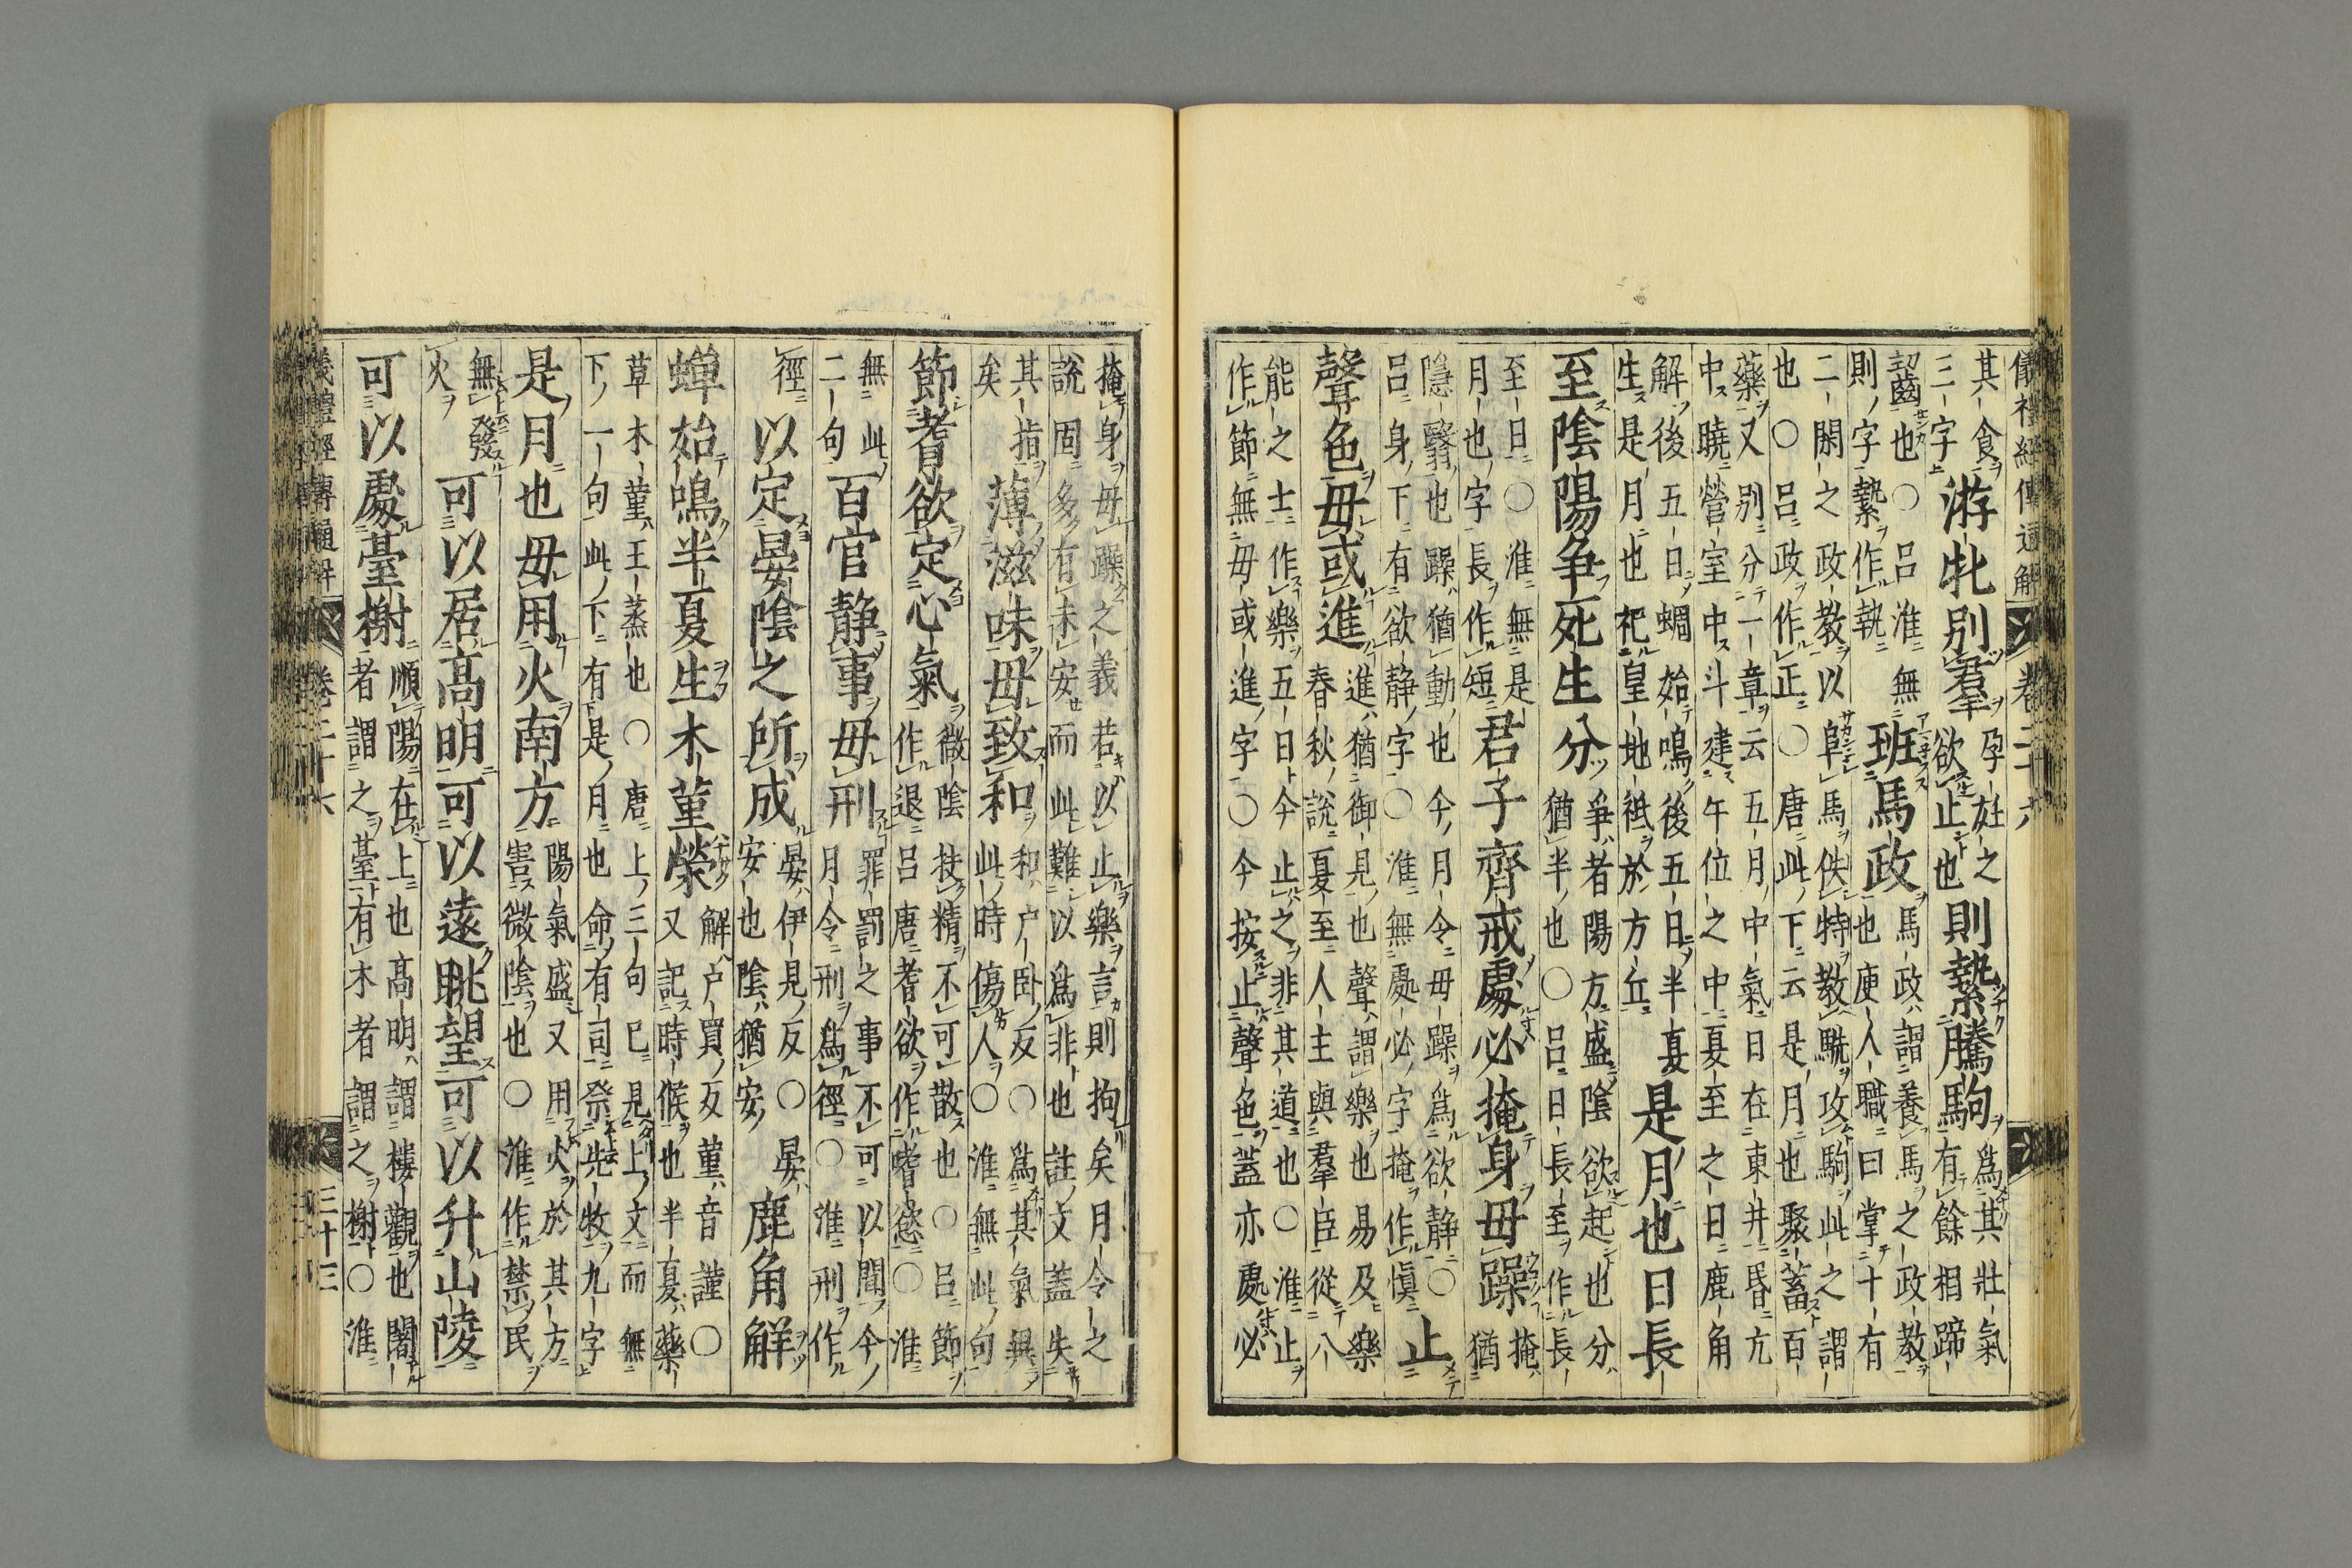 儀禮經傳通解 卷二十六
其食
三字
游牝別羣
孕妊之
欲止也
則縶騰駒
爲其壯氣
有餘相蹄
齧也○呂淮無
則字縶作執
班馬政
馬政謂養馬之政教
也庾人職曰掌十有
二閑之政教以阜馬佚特教駣攻駒此之謂
也○呂政作正○唐此下云是月也聚蓄百
藥又别分一章云五月中氣日在東井昏亢
中曉營室中斗建午位之中夏至之日鹿角
解後五日蜩始鳴後五日半夏
生是月也祀皇地祇於方丘
是月也日長
至陰陽争死生分
爭者陽方盛陰欲起也分
猶半也○呂日長至作長
至日○淮無是
月也字長作短
君子齊戒處必掩身毋躁
掩
猶
隱翳也躁猶動也今月令毋躁爲欲静○
呂身下有欲静字○淮無處必字掩作慎
止
聲色毋或進
進猶御見也聲謂樂也易及樂
春秋說夏至人主與羣臣從八
能之士作樂五日今止之非其道也○淮止
作節無毋或進字○今按止聲色蓋亦處必
掩身毋躁之義若以止樂言則拘矣月令之
說固多有未安而此難以爲非也註文蓋失
其指
矣
薄滋味毋致和
和户卧反○爲其氣異
此時傷人○淮無此句
節耆欲定心氣
微陰扶精不可散也○呂節
作退呂唐耆欲作嗜慾○淮
無此
二句
百官静事毋刑
罪罰之事不可以聞今
月令刑爲徑○淮刑作
徑
以定晏陰之所成
晏伊見反○晏
安也陰猶安
鹿角解
蟬始鳴半夏生木菫榮
解户買反菫音謹○
又記時候也半夏藥
草木菫王蒸也○唐上三句已見上文而無
下一句此下有是月也命有司祭先牧九字
是月也毋用火南方
陽氣盛又用火於其方
害微陰也○淮作禁民
無發
火
可以居高明可以遠眺望可以升山陵
可以處臺榭
順陽在上也高明謂樓觀也闍
者謂之臺有木者謂之榭○淮
儀禮經傳通解 卷二十六 三十三